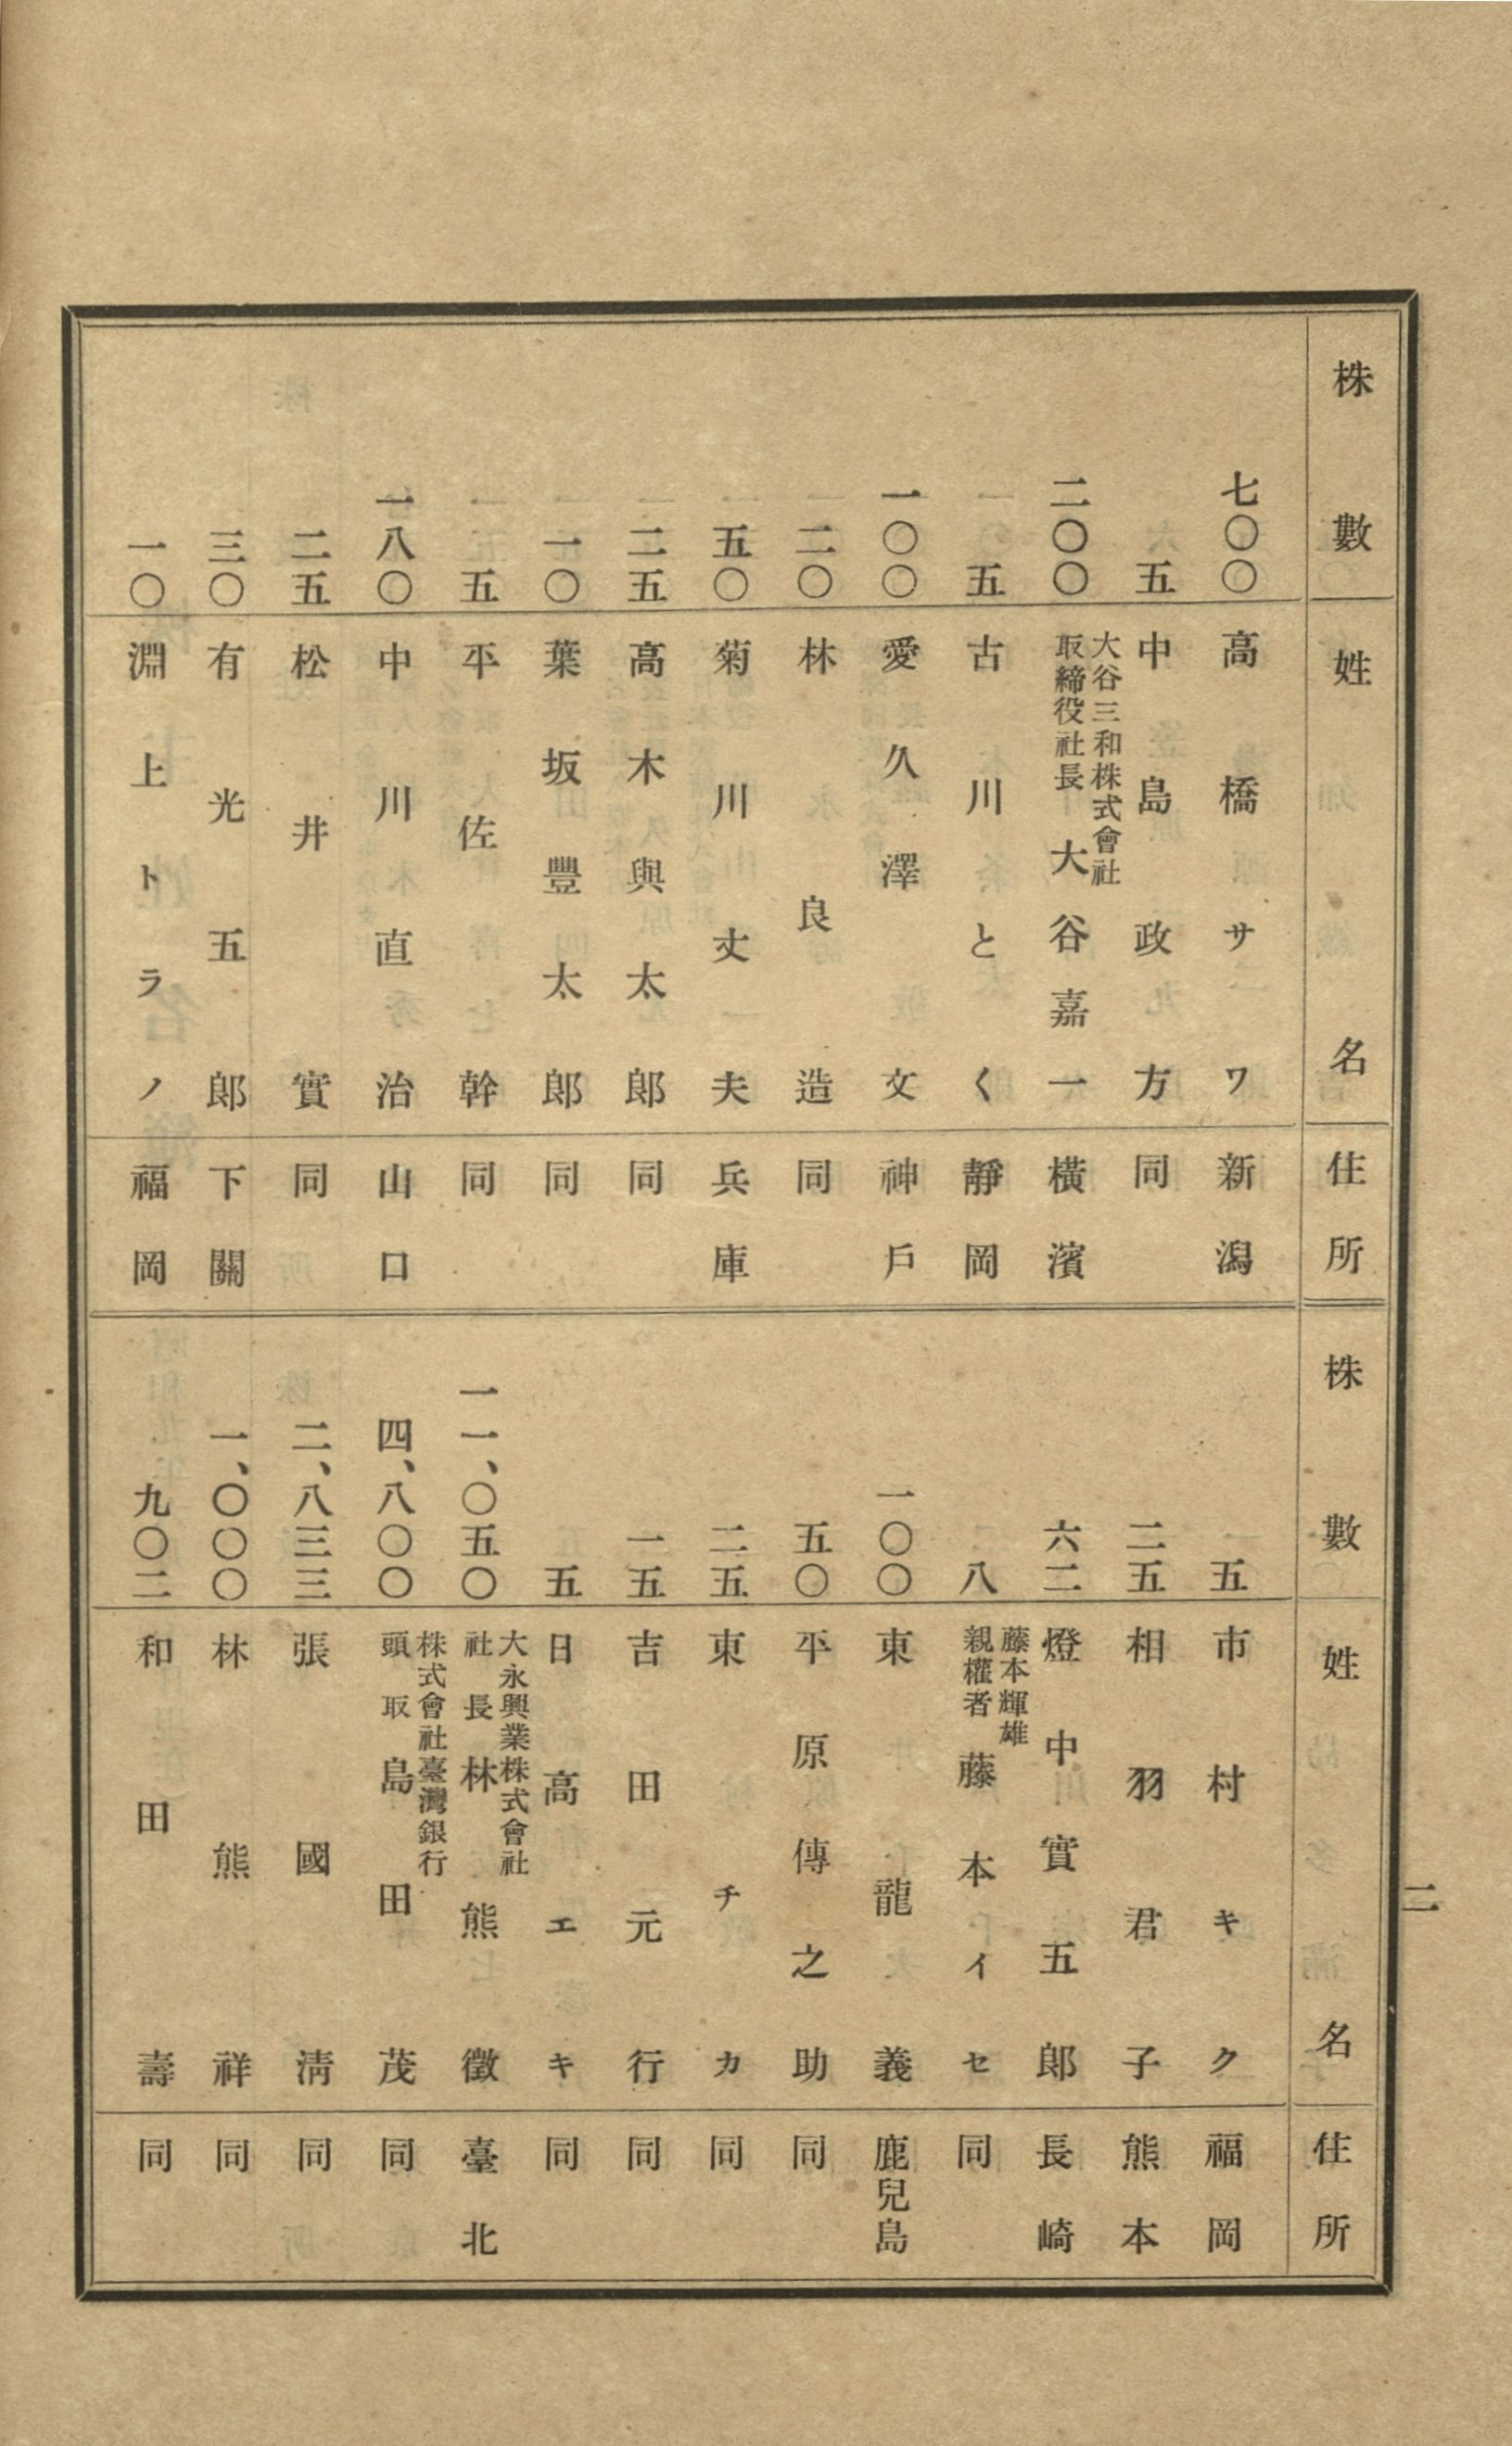 株數 姓名 住所
七〇〇 高橋サワ 新潟
五 中島政方 同
二〇〇 大谷三和株式會社取締役社長 大谷嘉一 橫濱
五 古川とく 靜岡
一〇〇 愛久澤文 神戶
二〇 林良造 同
五〇 菊川丈夫 兵庫
二五 高木與太郎 同
一〇 葉坂豐太郎 同
五 平佐幹 同
一八〇 中川直治 山口
二五 松井實 同
三〇 有光五郎 下關
一〇 淵上トラノ 福岡
株數 姓名 住所
五 市村キク 福岡
二五 相羽君子 熊本
六二 燈中實五郎 長崎
八 藤本輝雄親權者 藤本イセ 同
一〇〇 東龍義 鹿兒島
五〇 平原傳之助 同
二五 東チカ 同
一五 吉田元行 同
五 日高エキ 同
一一、〇五〇 大永興業株式會社社長 林熊徵 臺北
四、八〇〇 株式會社臺灣銀行頭取 島田茂 同
二、八三三 張國淸 同
一、〇〇〇 林熊祥 同
九〇二 和田壽 同
二